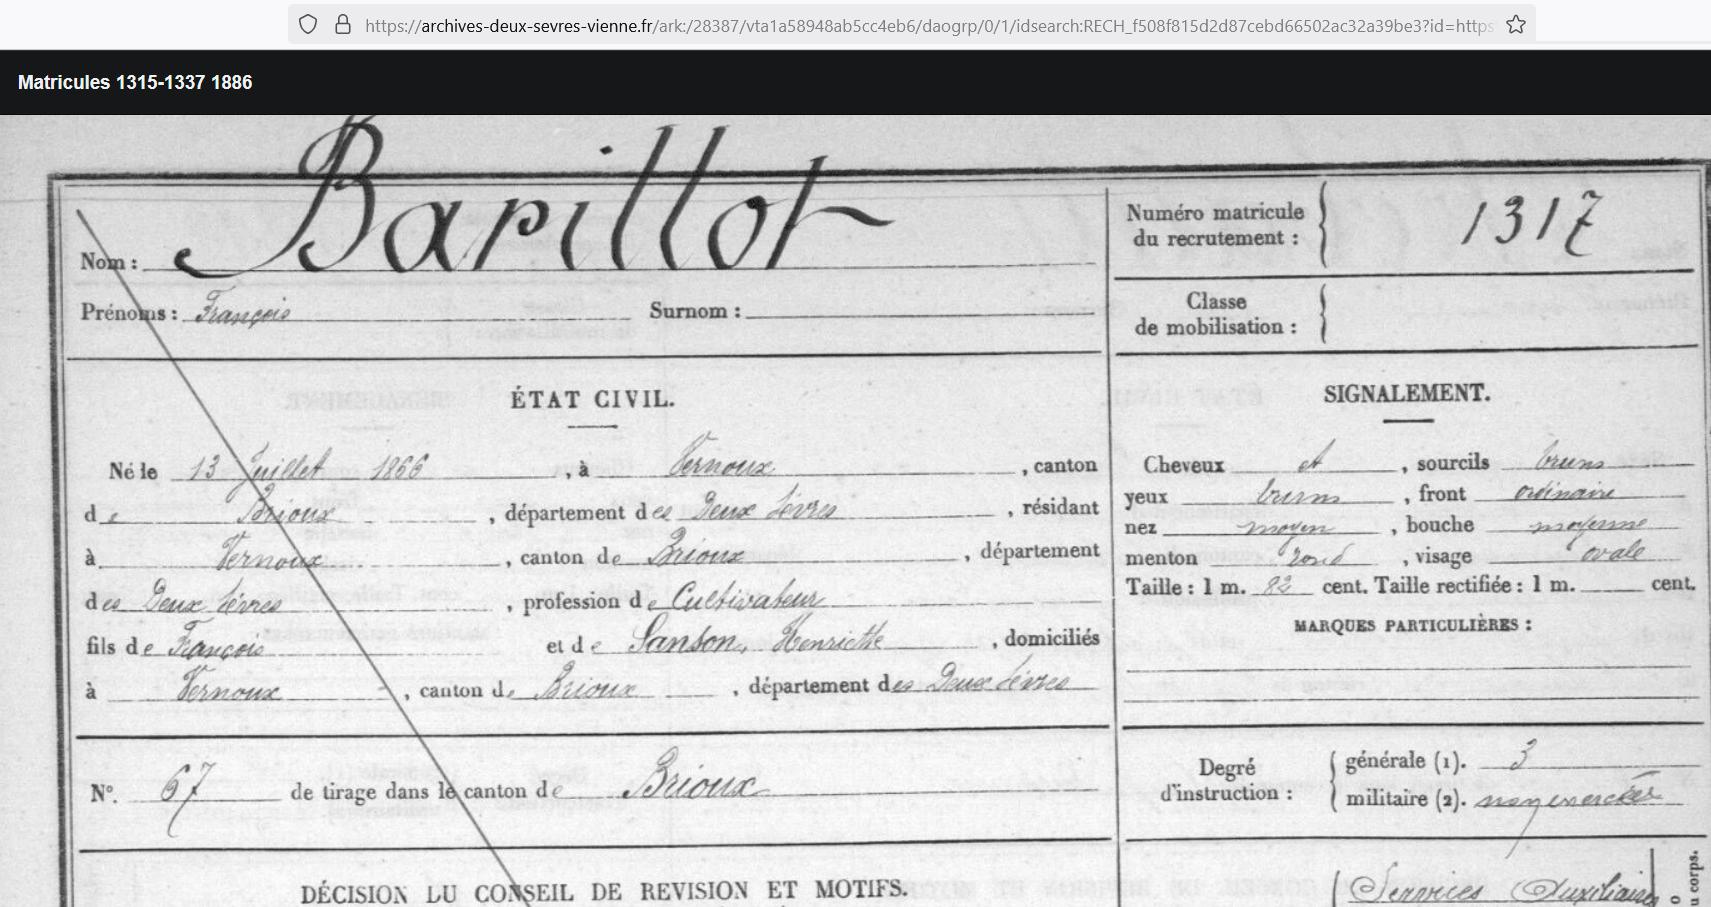 https://archives-deux-sevres-vienne.fr/ark:/28387/vta1a58948ab5cc4eb6/daogrp/0/1/idsearch:RECH_f508f815d2d87cebd66502ac32a39be3?id=https
Matricules 1315-1337 1886
Nom : Barillot
Prénoms : François Surnom :
Numéro matricule
du recrutement : 1317
Classe
de mobilisation :
ÉTAT CIVIL.
Né le 13 Juillet 1866, à Vernoux, canton
de Brioux, département des Deux Sèvres, résidant
à Vernoux, canton de Brioux, département
des Deux Sèvres, profession de Cultivateur
fils de François et de Sanson, Henriette, domiciliés
à Vernoux, canton de Brioux, département des Deux Sèvres
N°. 67 de tirage dans le canton de Brioux
DÉCISION DU CONSEIL DE REVISION ET MOTIFS.
SIGNALEMENT.
Cheveux et, sourcils bruns
yeux bruns, front ordinaire
nez moyen, bouche moyenne
menton rond, visage ovale
Taille : 1 m. 82 cent. Taille rectifiée : 1 m. cent.
MARQUES PARTICULIÈRES :
Degré
d'instruction :
générale (1). 3
militaire (2). non exercée
Services Auxiliaires
u corps.